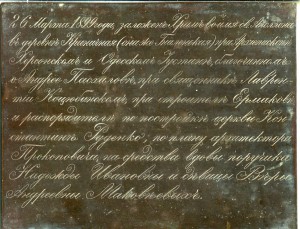 26 Марта 1899 года заложенъ Храмъ во имя св.
въ деревнѣ Криничкая (она же Батушкая) при Архіепископѣ
Херсонскомъ и Одесскомъ Іустинѣ, благочинномъ
о. Андреѣ Пасхаловѣ, при священникѣ Лаврен-
тіи Коцюбинскомъ, при строителѣ Ермаковѣ
и распорядителѣ по постройкѣ церкви Кон-
стантинѣ Руденко, по плану архитектора
Прокоповича, на средства вдовы поручика
Надежды Ивановны и дѣвицы Вѣры
Андреевны Маковѣевыхъ.